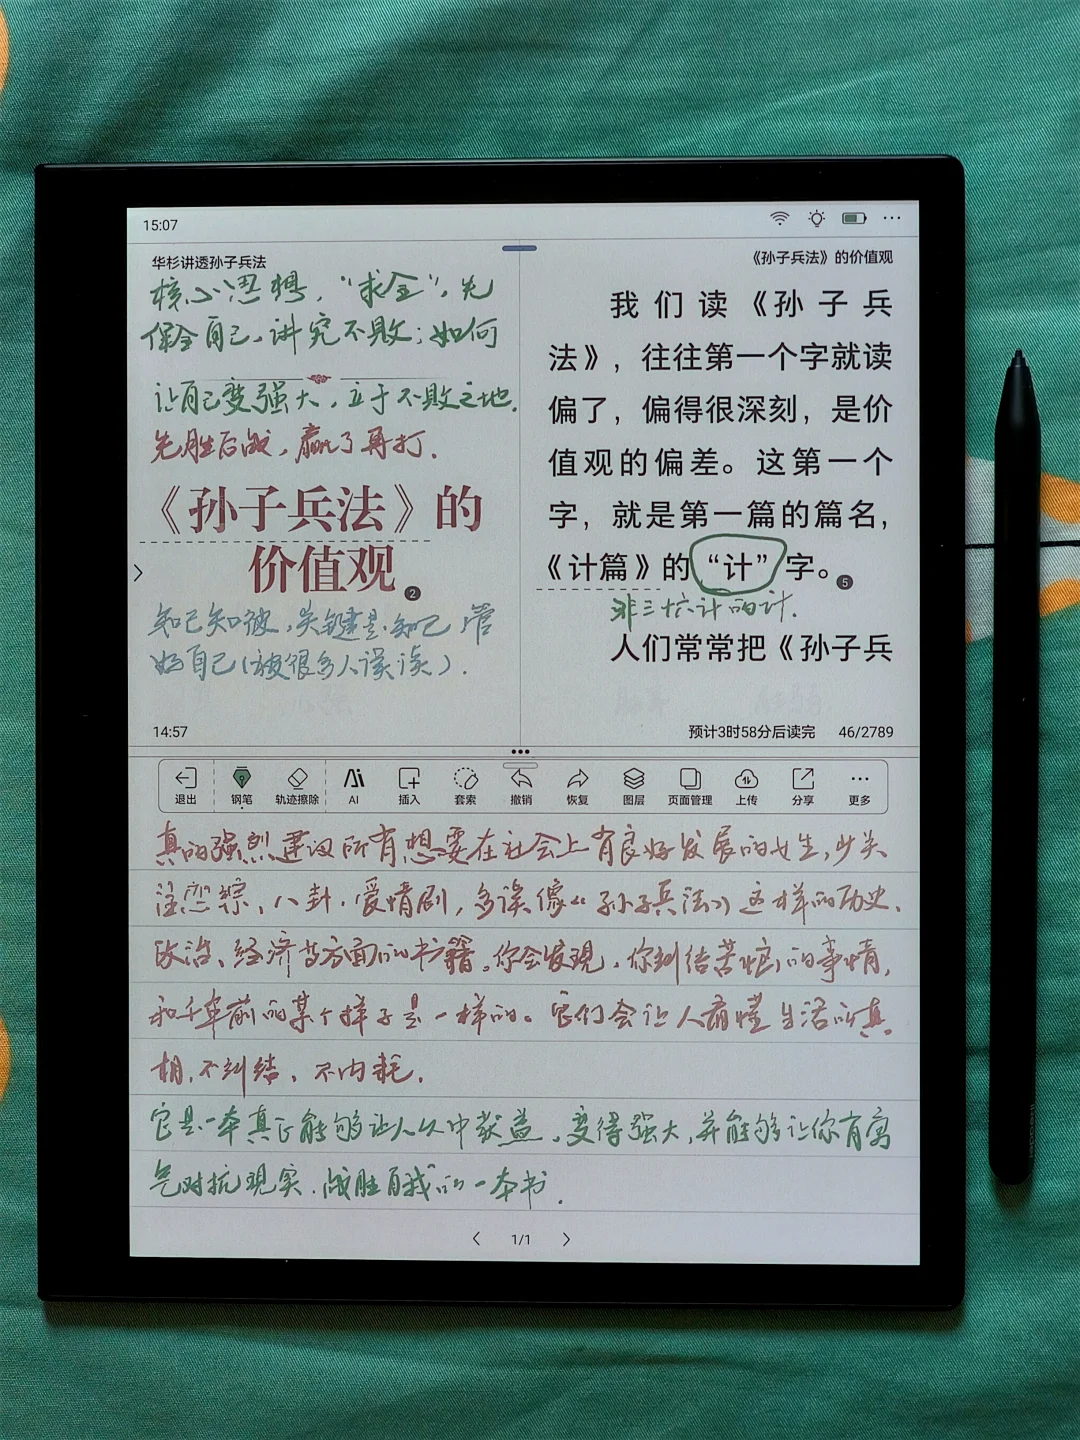 15:07
华杉讲透孙子兵法
核心思想，“求全”，先
保全自己，讲究不败；如何
让自己变强大，立于不败之地。
先胜后战，赢了再打.
《孙子兵法》的
价值观
2
知己知彼，关键是知己，管
好自己（被很多人误读）.
14:57
《孙子兵法》的价值观
我们读《孙子兵
法》，往往第一个字就读
偏了，偏得很深刻，是价
值观的偏差。这第一个
字，就是第一篇的篇名，
《计篇》的“计”字。
5
非三十六计的计.
人们常常把《孙子兵
预计3时58分后读完 46/2789
退出 钢笔 轨迹擦除 AI 插入 套索 撤销 恢复 图层 页面管理 上传 分享 更多
真的强烈建议所有想要在社会上有良好发展的女生，少关
注恋综、八卦、爱情剧，多读像《孙子兵法》这样的历史、
政治、经济等方面的书籍。你会发现，你纠结苦恼的事情，
和千年前的某个样子是一样的。它们会让人看懂生活的真
相，不纠结、不内耗.
它是一本真正能够让人从中获益、变得强大，并能够让你有勇
气对抗现实、战胜“自我”的一本书.
1/1